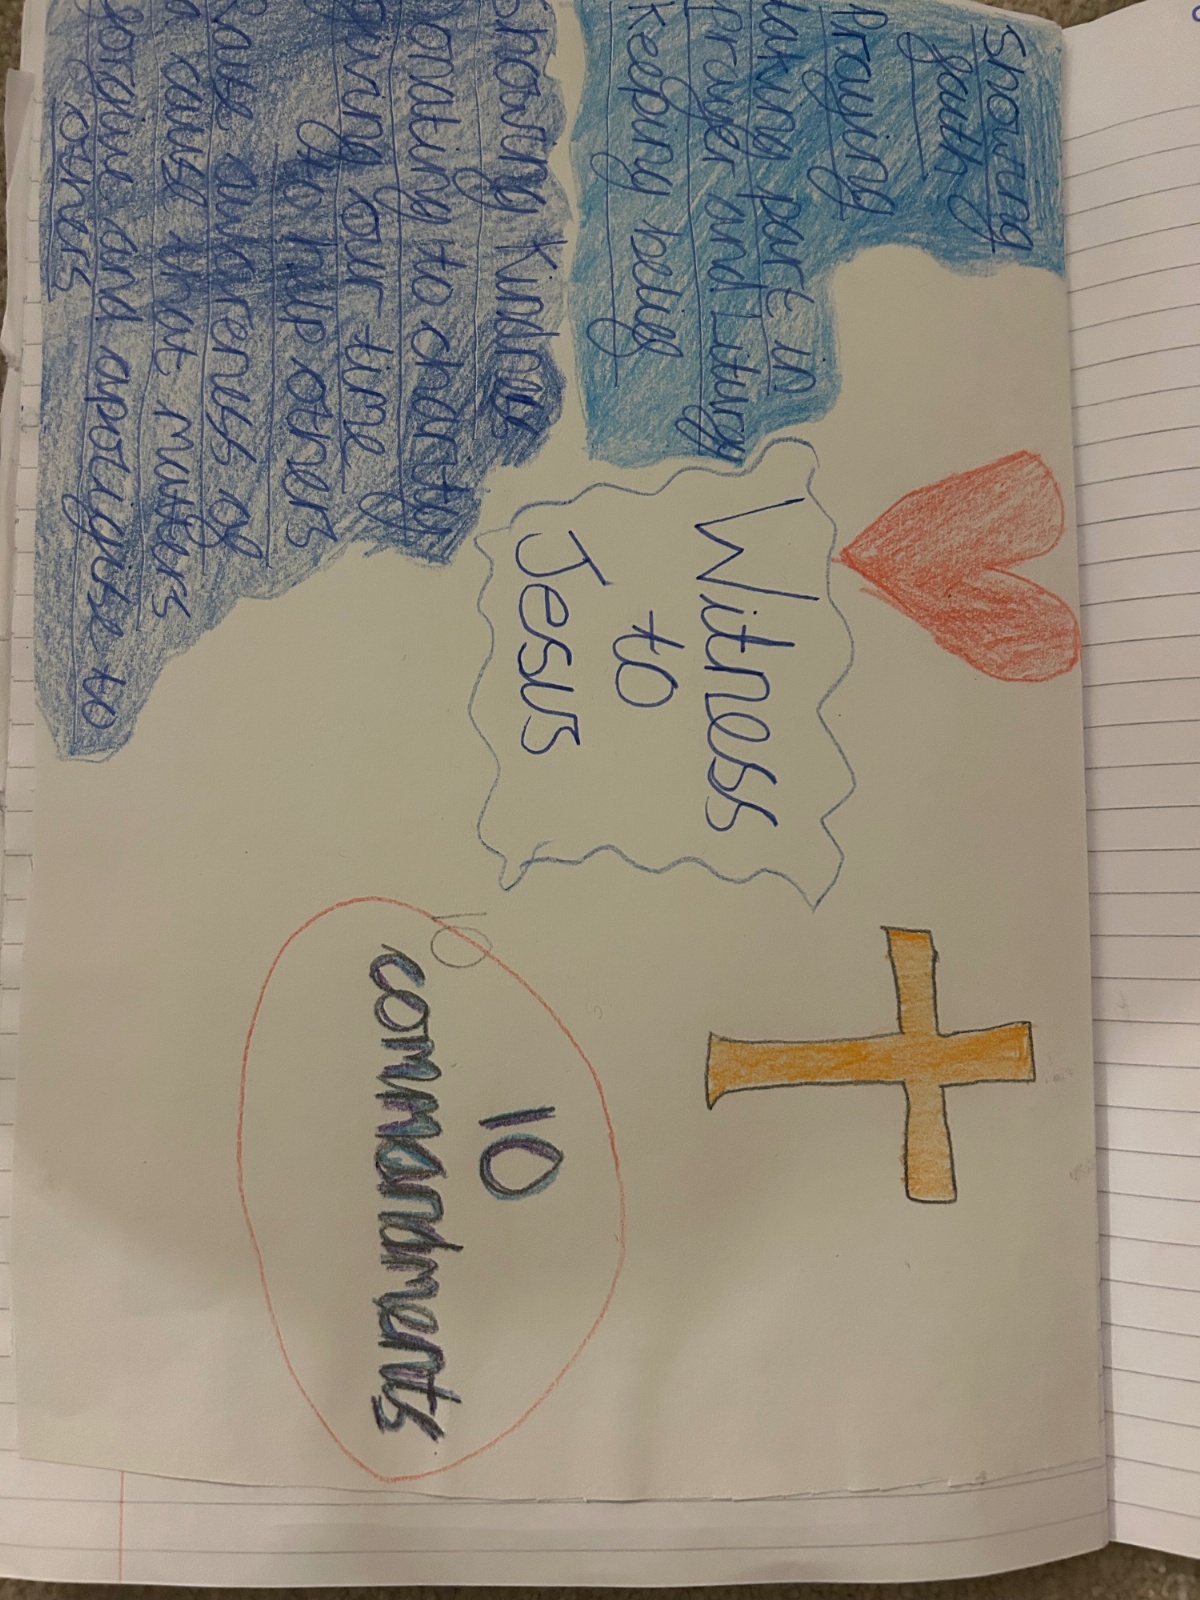 Showing
faith
Praying
taking part in
prayer and Liturgy
Keeping belief
Showing Kindness
Donating to charity
giving our time
to help others
Raise awareness of
a cause that matters
forgive and apoligise to
others
Witness
to
Jesus
10
commandments